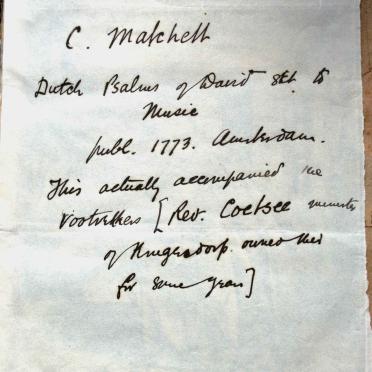 C. Matchett
Dutch Psalms of David set to
Music
publ. 1773. Amsterdam.
This actually accompanied the
Voortrekkers [Rev. Coetsee minister
of Krugersdorp owned this
for some years]